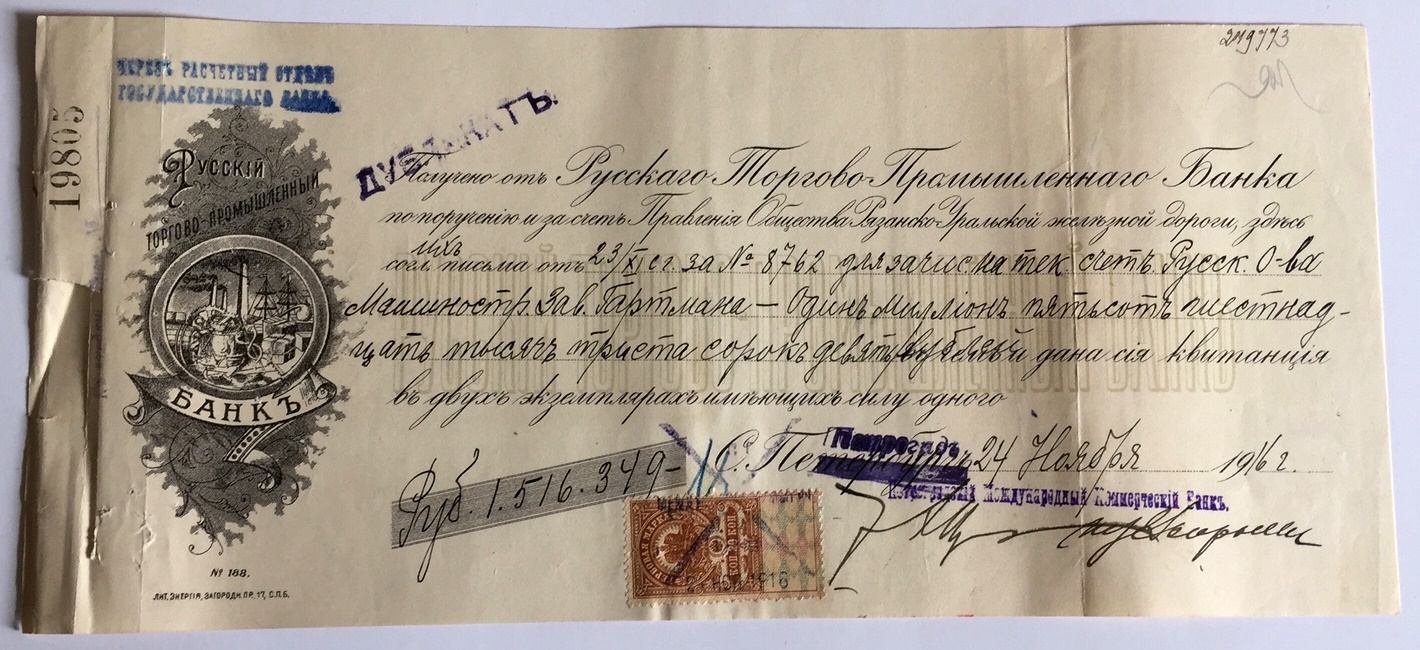 219773
19805
ЧЕРЕЗЪ РАСЧЕТНЫЙ ОТДѢЛЪ
ГОСУДАРСТВЕННАГО БАНКА.
ДУБЛИКАТЪ.
РУССКІЙ
ТОРГОВО-ПРОМЫШЛЕННЫЙ
БАНКЪ
Получено отъ Русскаго Торгово-Промышленнаго Банка
по порученію и за счетъ Правленія Общества Рязанско-Уральской желѣзной дороги, здѣсь
ихъ
согл. письма отъ 23/XI с.г. за № 8762 для зачис. на тек. счетъ Русск. О-ва
Машиностр. Зав. Гартмана — Одинъ милліонъ пятьсотъ шестнад-
цать тысячъ триста сорокъ девять рублей и дана сія квитанція
въ двухъ экземплярахъ имѣющихъ силу одного
Руб. 1.516.349-
С. Петербургъ 24 Ноября 1916 г.
Петроградъ
Петроградскій Международный Коммерческій Банкъ.
1916
№ 188.
ЛИТ. ЭНЕРГІЯ, ЗАГОРОДН. ПР. 17, С.П.Б.